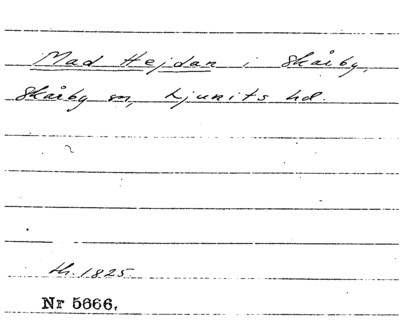 Mad Hejdan i Skårby,
Skårby sn, Ljunits hd.
th. 1825
Nr 5666.